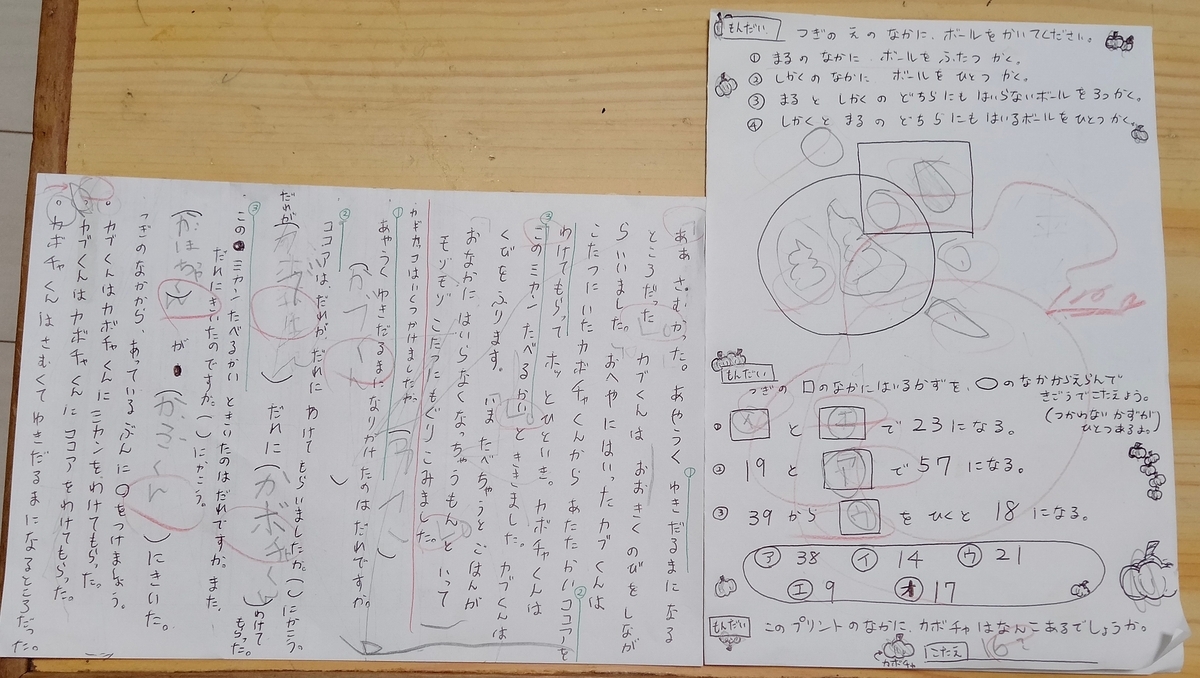 もんだい つぎの えの なかに、ボールを かいてください。
① まるの なかに ボールを ふたつ かく。
② しかくの なかに ボールを ひとつ かく。
③ まると しかくの どちらにも はいらない ボールを 3つ かく。
④ しかくと まるの どちらにも はいる ボールを ひとつ かく。
もんだい
つぎの □のなかにはいるかずを、○のなかからえらんで
きごうでこたえよう。
(つかわない かずが
ひとつあるよ。)
① イ と エ で 23 になる。
② 19 と ア で 57 になる。
③ 39 から ウ を ひくと 18 になる。
ア 38 イ 14 ウ 21
エ 9 オ 17
もんだい このプリントのなかに、カボチャはなんこあるでしょうか。
カボチャ こたえ 16こ
あぁ さむかった。あやうく ゆきだるまになる
ところだった カブくんは おおきくのびをしなが
らいいました。おへやにはいったカブくんは
こたつにいたカボチャくんから あたたかいココアを
わけてもらって ホッとひといき。カボチャくんは
このミカン たべるかい とききました。カブくんは
くびをふります。いま たべちゃうと ごはんが
おなかに はいらなくなっちゃうもん といって
モゾモゾ こたつにもぐりこみました。
カギカッコはいくつかけましたか。
① あやうくゆきだるまになりかけたのはだれですか。
(かぶくん)
② ココアは、だれが、だれに わけてもらいましたか。()にかこう。
だれが ( ) だれに (カボチャくん) わけてもらった。
③ この ミカンたべるかい ときいたのはだれですか。また、
だれにきいたのですか。()にかこう。
(かぼちゃくん) が (かぶくん) にきいた。
つぎのなかから、あっているぶんに○をつけましょう。
。カブくんはカボチャくんにミカンをわけてもらった。
。カブくんはカボチャくんにココアをわけてもらった。
。カボチャくんはさむくてゆきだるまになるところだった。